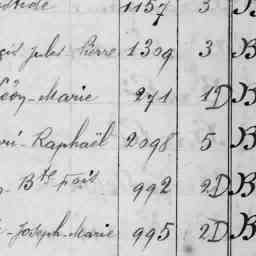 1157 3 B
Jules Pierre 1309 3 B
Léon-Marie 271 1D B
Raphaël 2098 5 B
Bte Fois 992 2D B
-Joseph-Marie 995 2D B